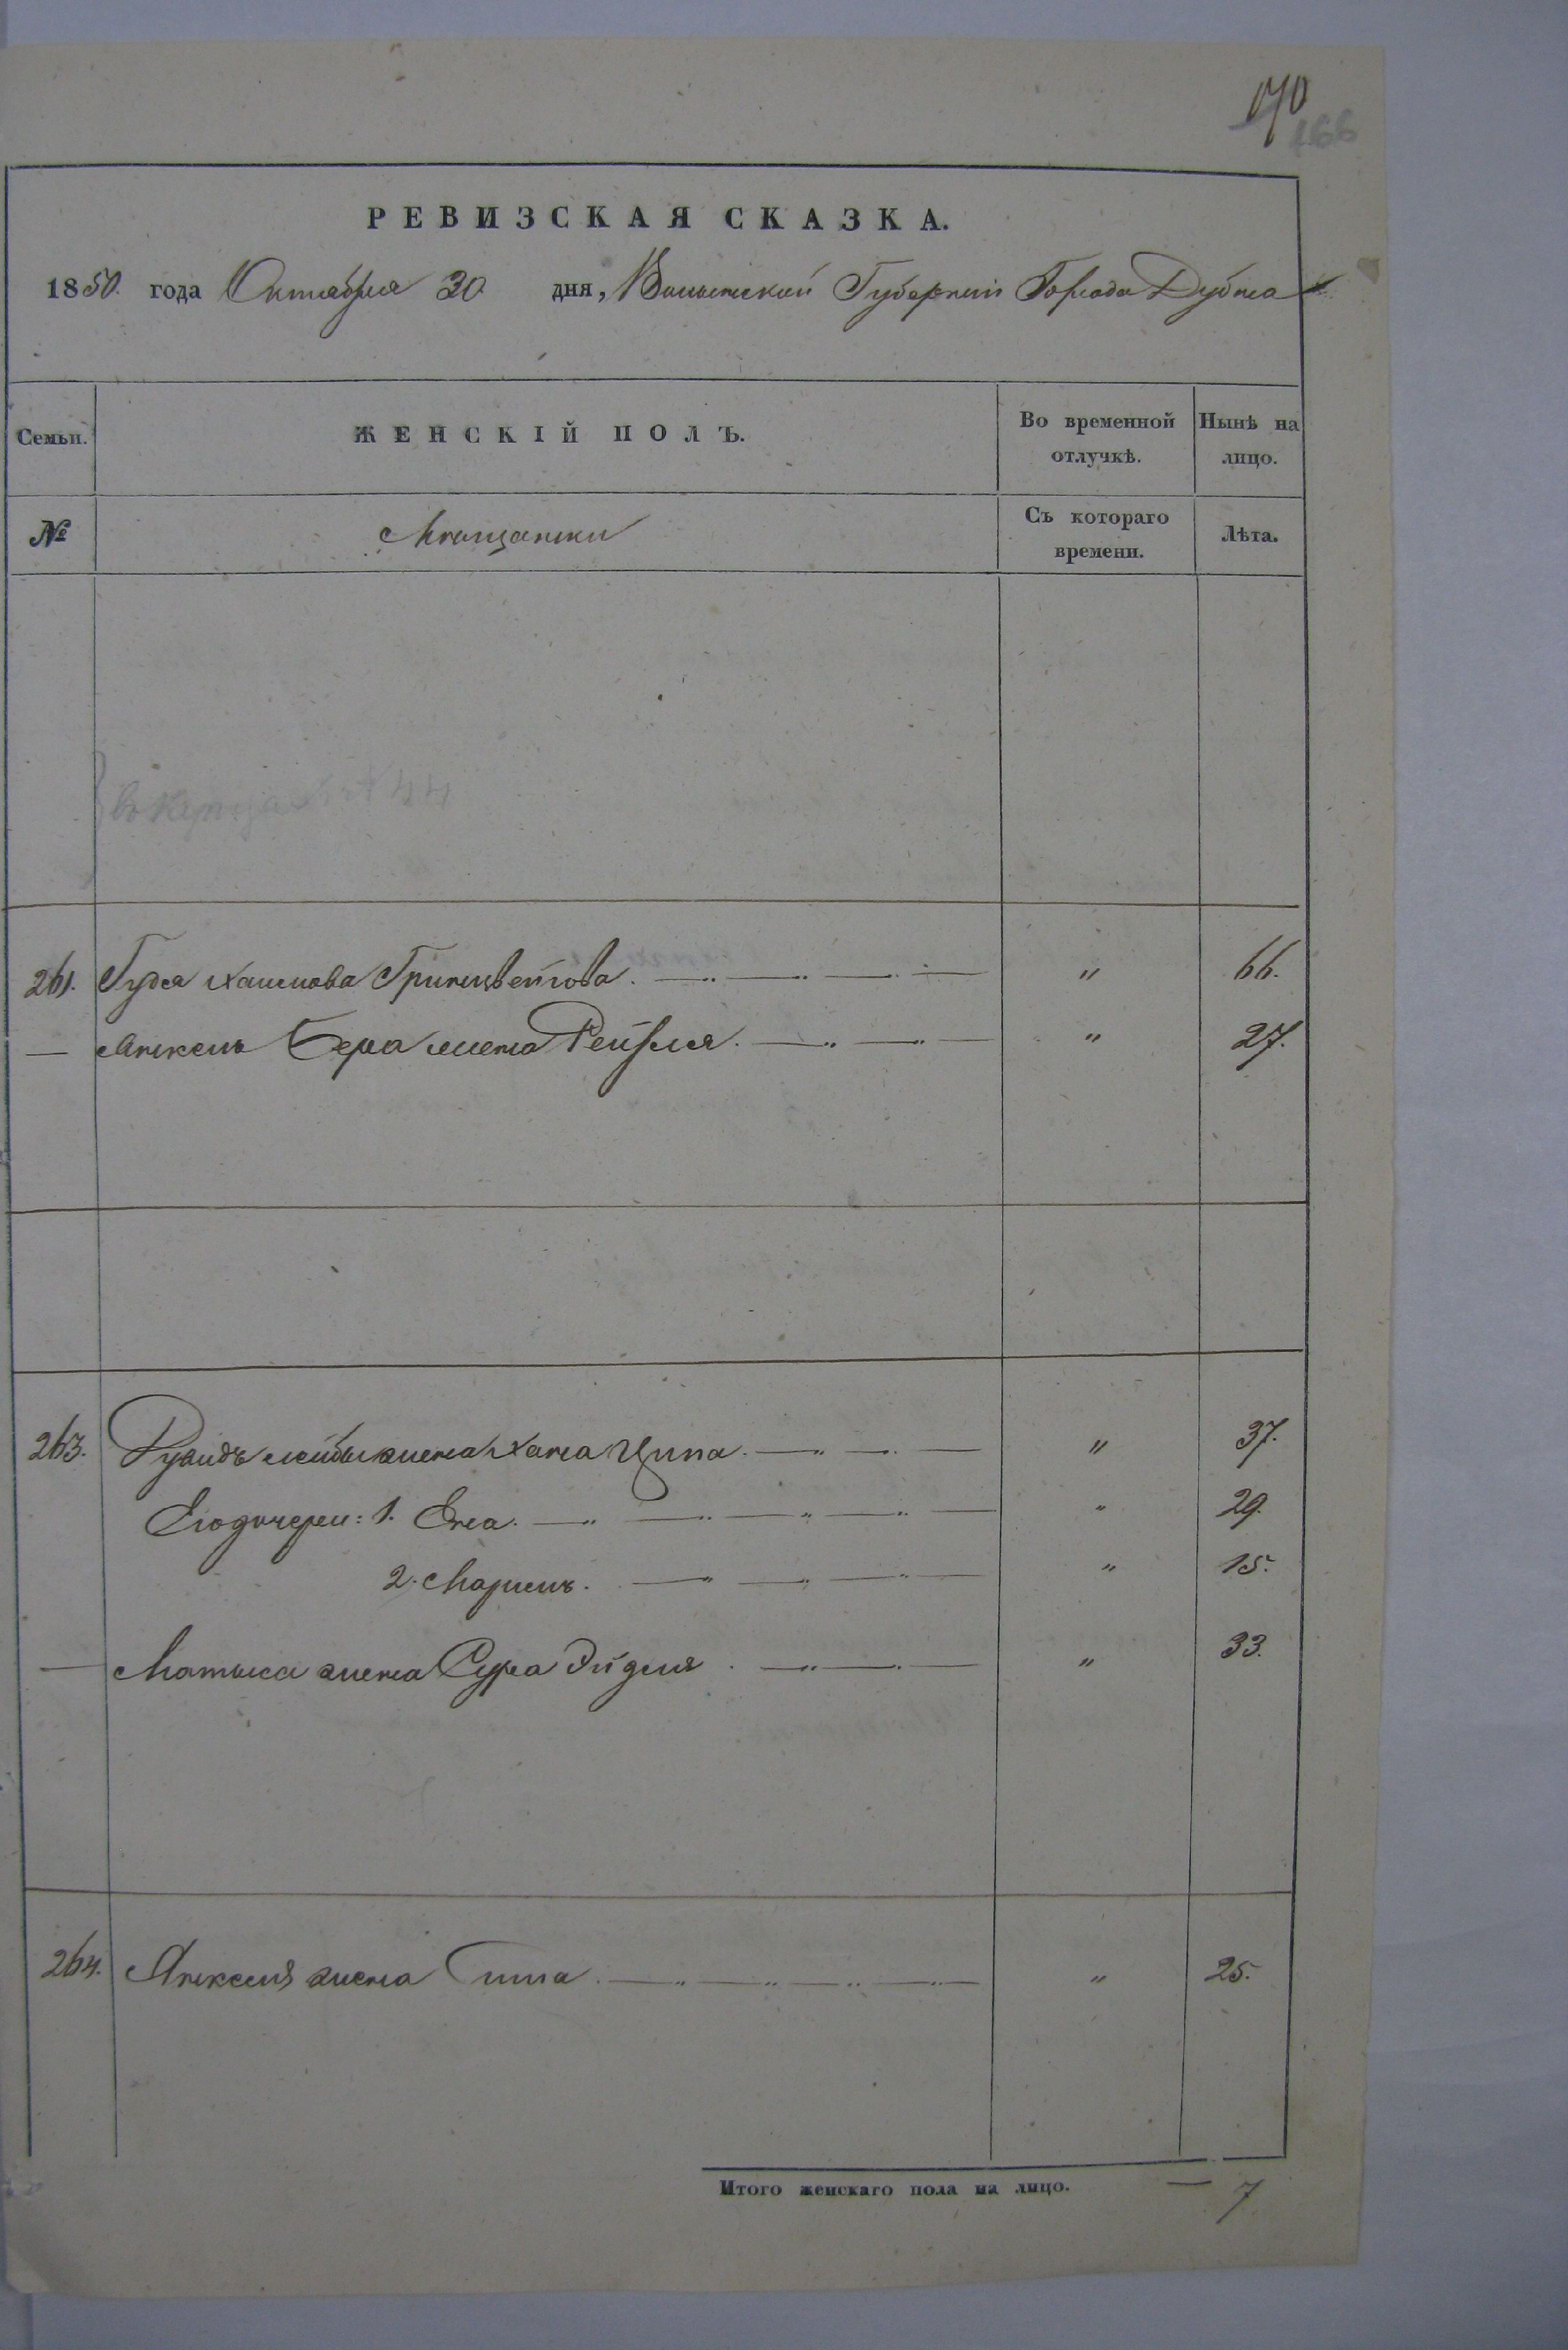 170
166
РЕВИЗСКАЯ СКАЗКА.
1850. года Октября 30 дня, Волынской Губернии Города Дубна
Семьи. ЖЕНСКІЙ ПОЛЪ. Во временной отлучкѣ. Нынѣ на лицо.
№ Мѣщанки Съ котораго времени. Лѣта.
№ 44
261. Гудся Хаимова " 66.
— Анкель Бера жена Рейзля. " 27.
263. Лейбы жена Хана Ципа. " 37.
Его дочери: 1. Ена. " 29.
2. Маріемъ. " 15.
— Матыса жена Сура Эйдля. " 33.
264. жена " 25.
Итого женскаго пола на лицо. — 7